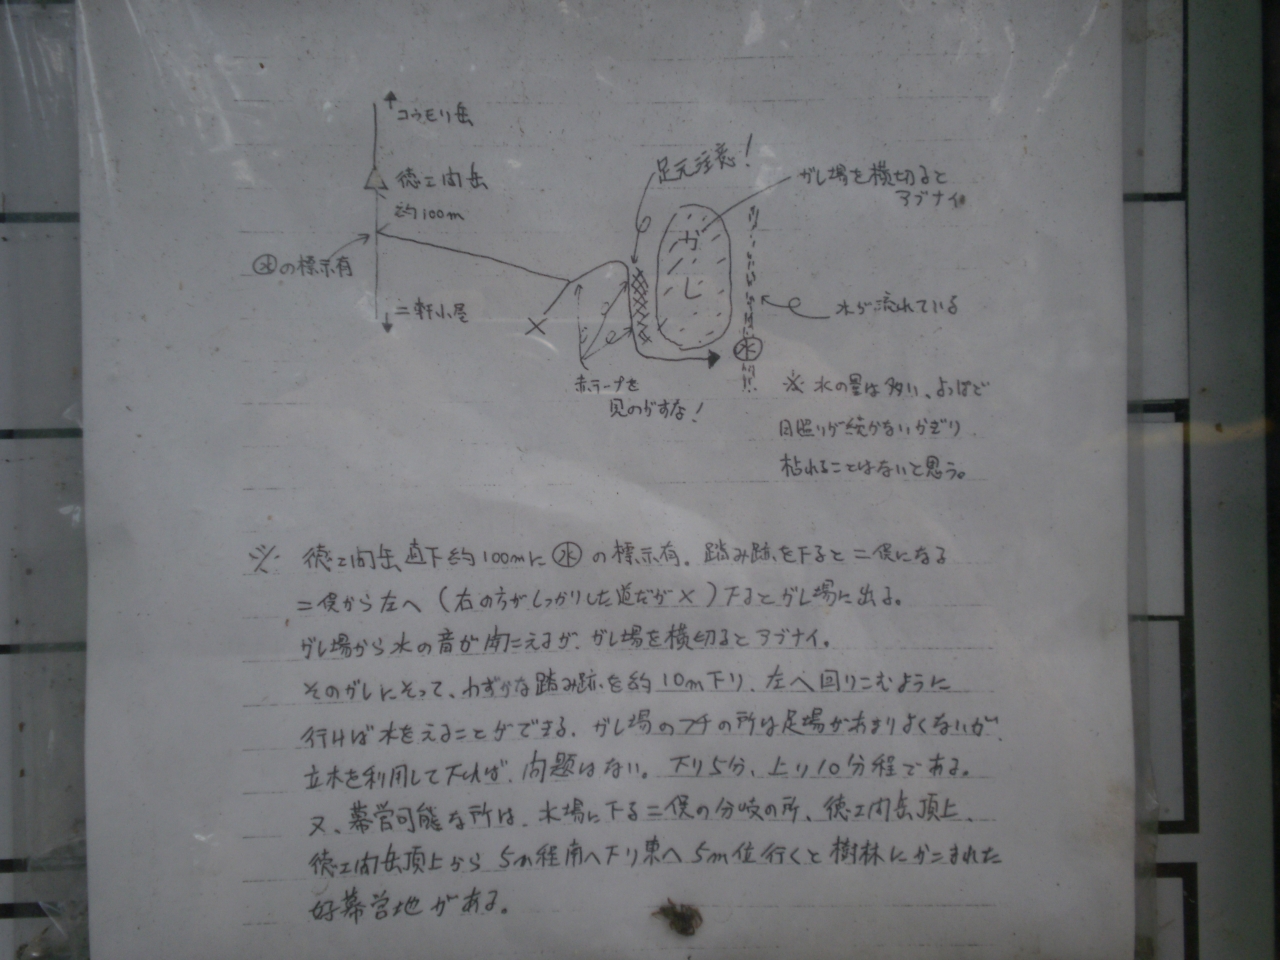 コウモリ岳
徳エ間岳
約100m
㊌の標示有
二軒小屋
足元注意!
ガレ場を横切ると
アブナイ
ガレ
水が流れている
㊌
赤テープを
見のがすな!
※ 水の量は多い、よっぽど
日照りが続かないかぎり
枯れることはないと思う。
※ 徳エ間岳直下約100mに㊌の標示有。踏み跡を下ると二俣になる
二俣から左へ(右の方がしっかりした道だが×)下るとガレ場に出る。
ガレ場から水の音が聞こえるが、ガレ場を横切るとアブナイ。
そのガレにそって、わずかな踏み跡を約10m下り、左へ回りこむように
行けば水をえることができる。ガレ場のフチの所は足場があまりよくないが、
立木を利用して下れば、問題はない。下り5分、上り10分程である。
又、幕営可能な所は、水場に下る二俣の分岐の所、徳エ間岳頂上、
徳エ間岳頂上から5m程南へ下り東へ5m位行くと樹林にかこまれた
好幕営地がある。